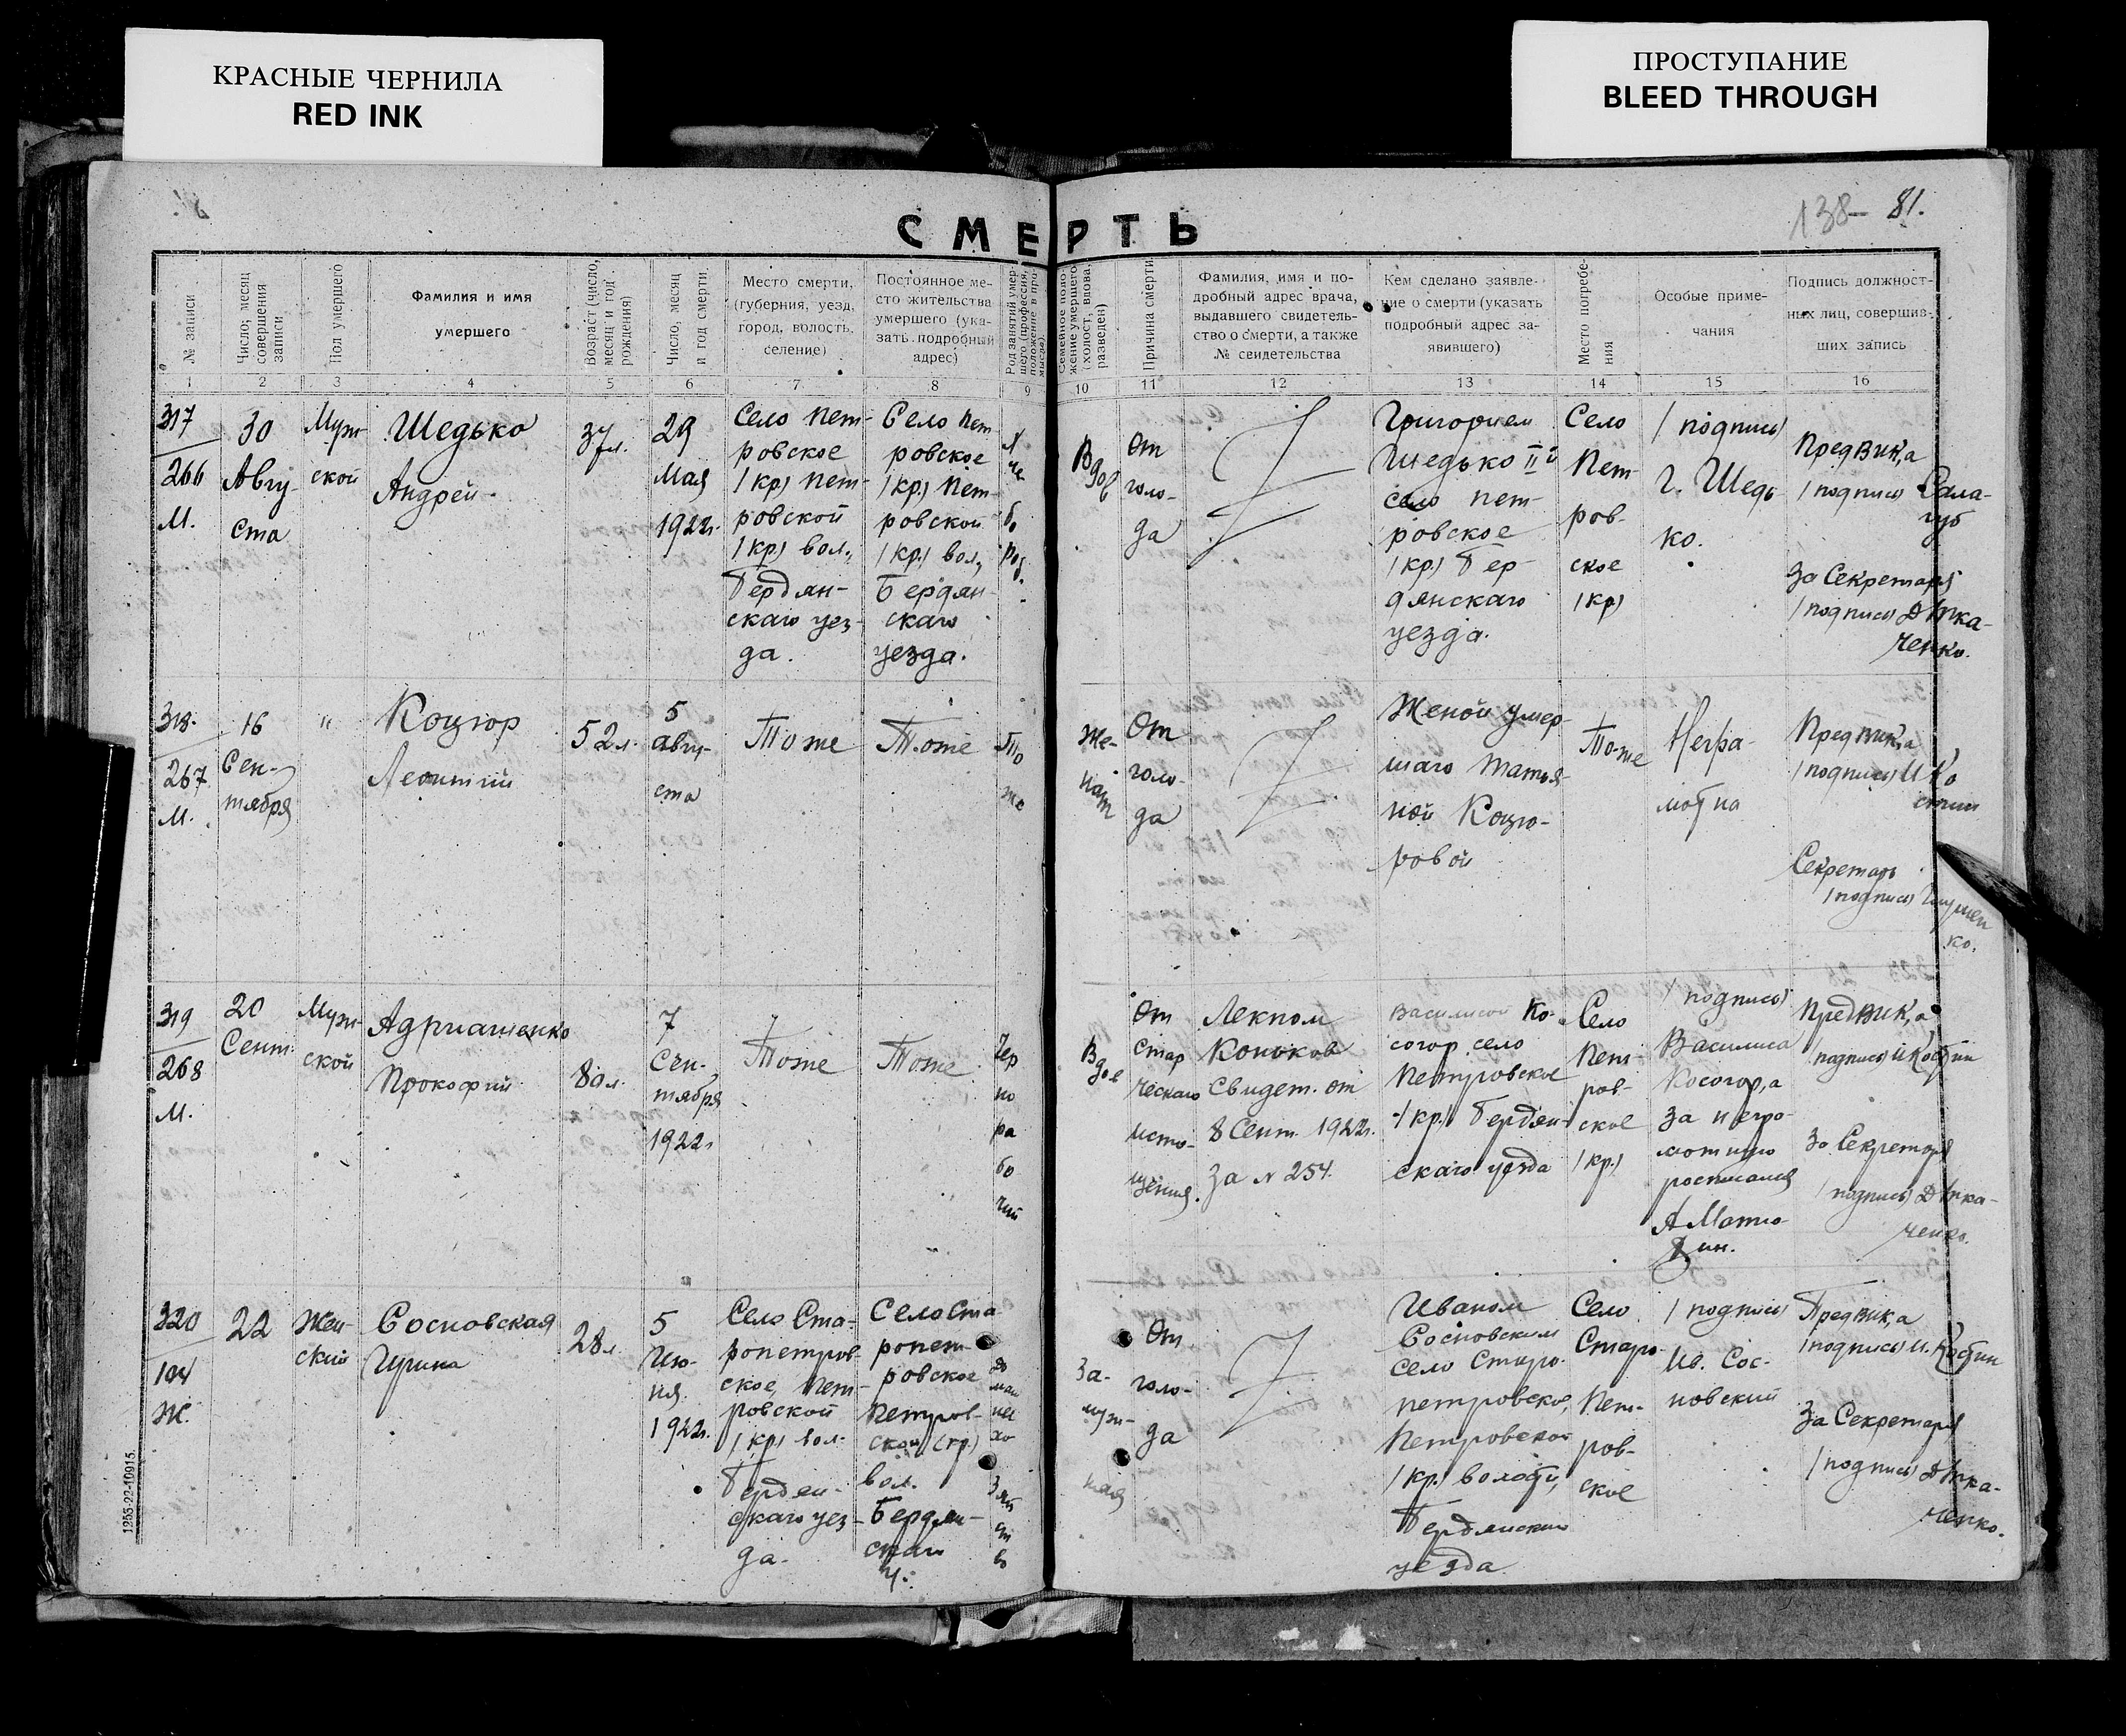 КРАСНЫЕ ЧЕРНИЛА
RED INK
ПРОСТУПАНИЕ
BLEED THROUGH
138– 81.
СМЕРТЬ
№ записи
Число, месяц
совершения
записи
Пол умершего
Фамилия и имя
умершего
Возраст (число,
месяц и год
рождения)
Число, месяц
и год смерти.
Место смерти,
(губерния, уезд,
город, волость,
селение)
Постоянное ме-
сто жительства
умершего (ука-
зать подробный
адрес)
Род занятий умер-
шего (профессия,
положение в про-
мысле).
Семейное поло-
жение умершего
(холост, вдова,
разведен)
Причина смерти.
Фамилия, имя и по-
дробный адрес врача,
выдавшего свидетель-
ство о смерти, а также
№ свидетельства
Кем сделано заявле-
ние о смерти (указать
подробный адрес за-
явившего)
Место погребе-
ния
Особые приме-
чания
Подпись должност-
ных лиц, совершив-
ших запись
1 2 3 4 5 6 7 8 9 10 11 12 13 14 15 16
317
266
М.
30
Авгу-
ста
Муж-
ской
Шедько
Андрей
37л.
29
Мая
1922г.
Село Пет-
ровское
/кр/ Пет-
ровской
/кр/ вол.,
Бердян-
скаго уез-
да.
Село Пет
ровское
/кр./ Пет-
ровской
/кр./ вол.,
Бердян-
скаго
уезда.
Вдов
От
голо-
да
Григорием
Шедько II й
село Пет-
ровское
/кр/ Бер-
дянскаго
уезда.
Село
Пет-
ров-
ское
/кр/
/подпись/
Г. Шедь
ко.
Предвик,а
/подпись/ Сала-
губ
За Секретаря
/подпись/ Д Тка-
ченко.
318.
267
М.
16
Сен-
тября
"
Коцюр
Леонтий
52л.
5
авгу-
ста
Тоже
Тоже
То
же
Же-
нат
От
голо-
да
Женой умер-
шаго Татья-
ной Коцю-
ровой
Тоже
Негра-
мотна
Предвик,а
/подпись/ И Ко
стин
Секретарь
/подпись/
ко.
319
268
М.
20
Сент.
Муж-
ской
Адриашенко
Прокофий
80л.
7
Сен-
тября
1922г
Тоже
Тоже
Чер
но
ра
бо
чий
Вдов
От
Стар
ческаго
исто-
щения.
Лекпом
Коньков
Свидет. от
8 Сент. 1922г.
За № 254.
Василисой Ко-
согор село
Петровское
/кр./ Бердян-
скаго уезда
Село
Пет-
ров-
ское
/кр./
/подпись/
Василиса
Косогор,а
за негра-
мотную
росписался
А Матю-
Предвик,а
/подпись/ И Костин
За Секретаря
/подпись/ Д Тка-
ченко.
320
104
Ж.
22
Жен-
ский
Сосновская
Ирина
28л.
5
Ию-
ня.
1922г.
Село Ста-
ропетров-
ское, Пет-
ровской
/кр/ вол.
Бердян-
скаго уез-
да.
Село Ста
ропет-
ровское
Петров-
ской (кр.)
вол.
Бердян-
скаго
у.
до
маш
нее
хо
зяй
ст
во
За-
муж-
няя
От
голо-
да
Иваном
Сосновским
село Старо-
петровское,
Петровской
/кр./ волости,
Бердянскаго
уезда.
Село
Старо-
Пет-
ров-
ское
/подпись/
Ив. Сос-
новский
Предвик,а
/подпись/ И. Костин
За Секретаря
/подпись/ Д Тка-
ченко.
1255-22-10915